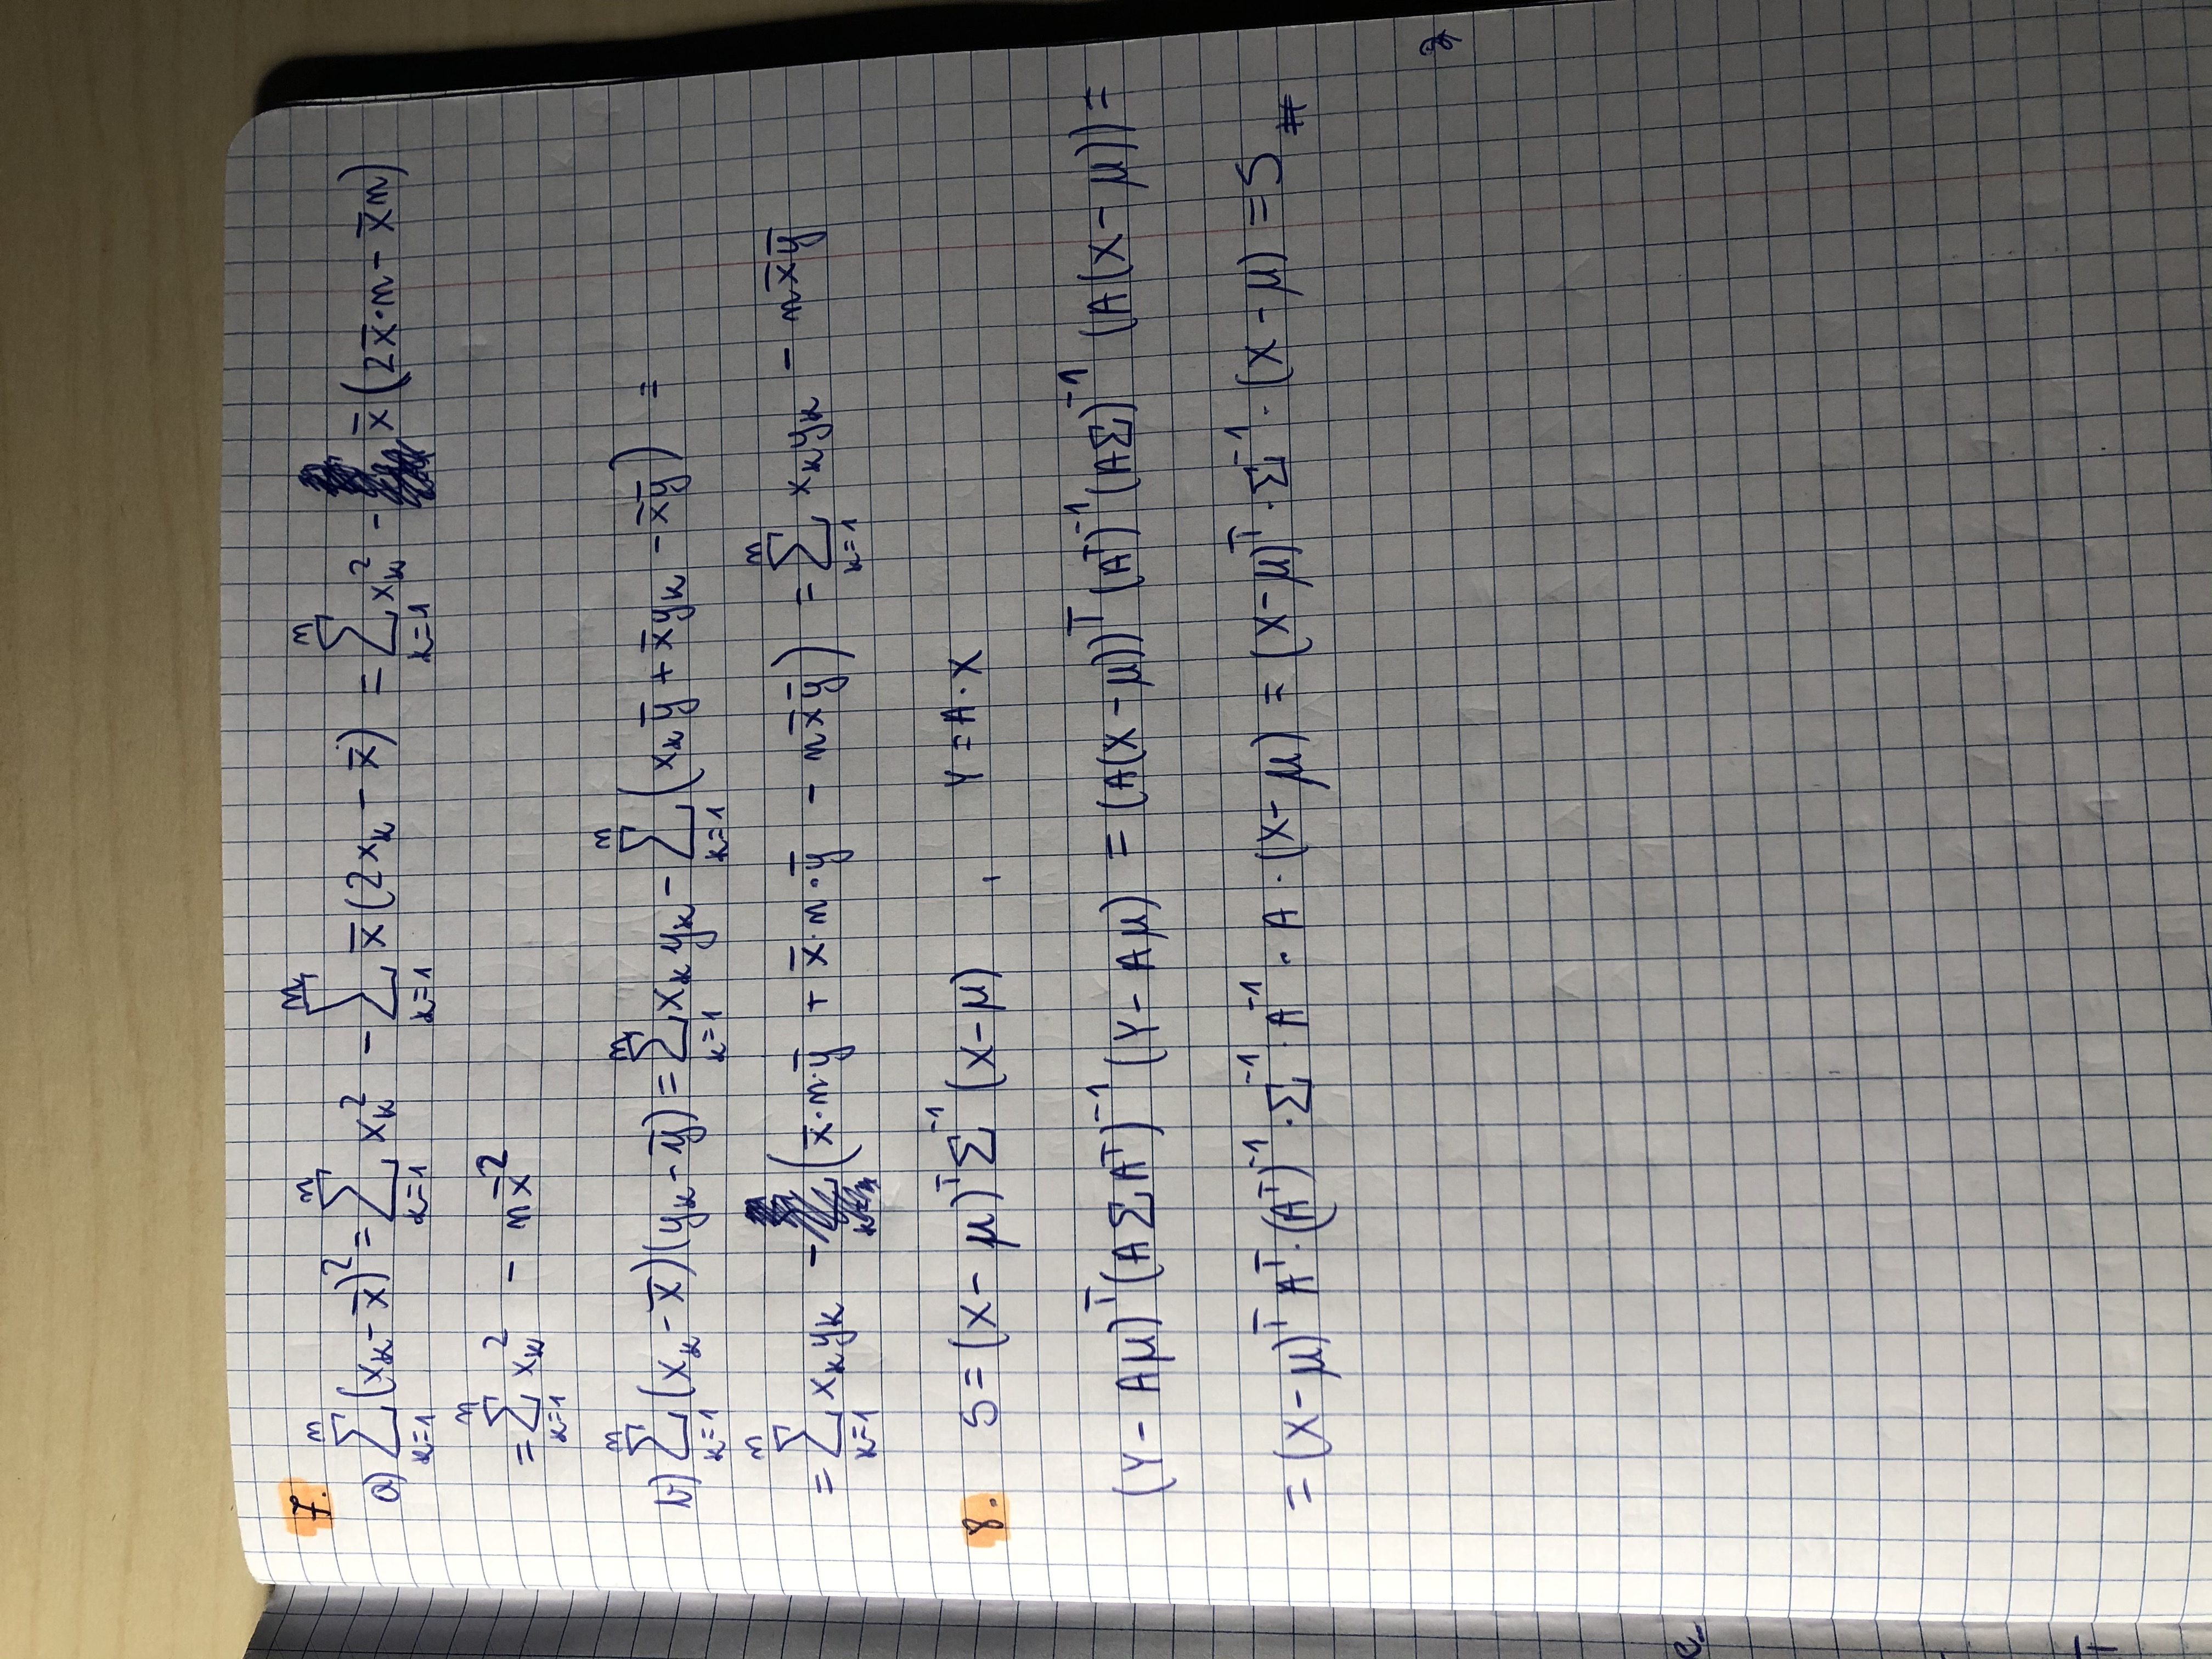 7.
a) ∑_{k=1}^{n} (x_k - x̄)² = ∑_{k=1}^{n} x_k² - ∑_{k=1}^{n} x̄(2x_k - x̄) = ∑_{k=1}^{n} x_k² - x̄(2x̄·n - x̄n)
= ∑_{k=1}^{n} x_k² - nx̄²
b) ∑_{k=1}^{n} (x_k - x̄)(y_k - ȳ) = ∑_{k=1}^{n} x_k y_k - ∑_{k=1}^{n} (x_k ȳ + x̄ y_k - x̄ȳ) =
= ∑_{k=1}^{n} x_k y_k - (x̄·n·ȳ + x̄·n·ȳ - nx̄ȳ) = ∑_{k=1}^{n} x_k y_k - nx̄ȳ
8. S = (X - μ)^T Σ^{-1} (X - μ) , Y = A · X
(Y - Aμ)^T (AΣA^T)^{-1} (Y - Aμ) = (A(X - μ))^T (A^T)^{-1} (AΣ)^{-1} (A(X - μ)) =
= (X - μ)^T A^T · (A^T)^{-1} · Σ^{-1} · A^{-1} · A · (X - μ) = (X - μ)^T · Σ^{-1} · (X - μ) = S #